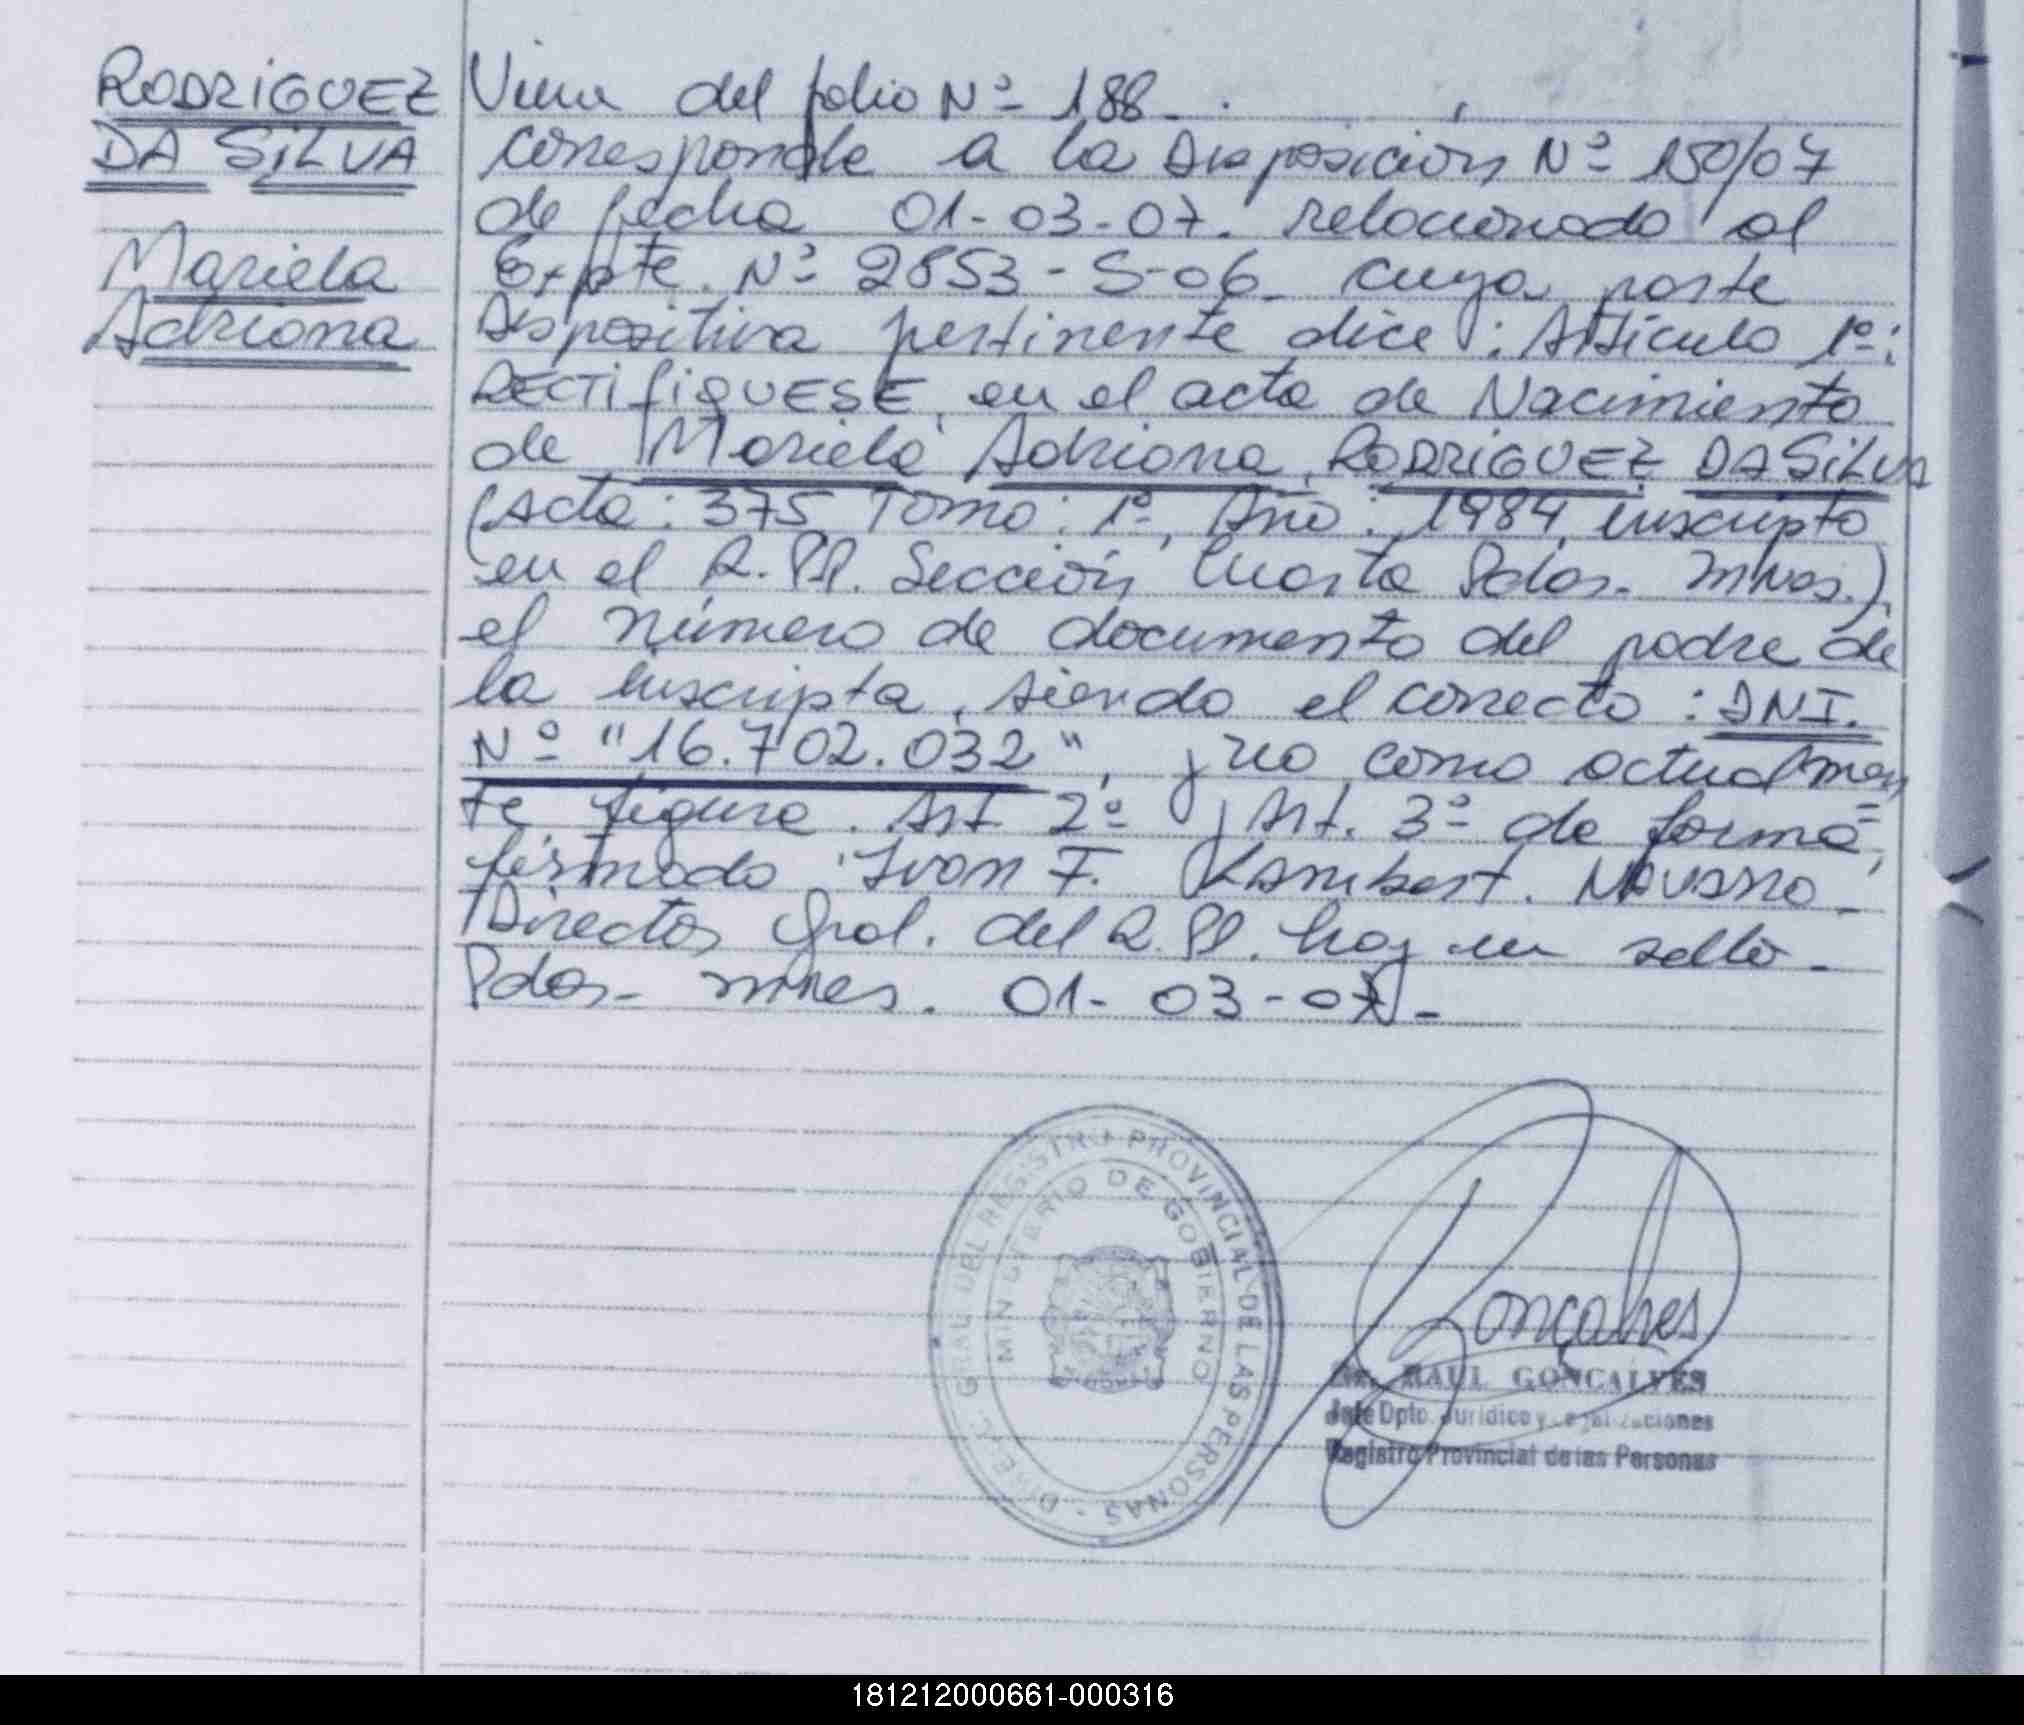 RODRIGUEZ
DA SILVA
Mariela
Adriana
Viene del folio Nº 188.
corresponde a la Disposición Nº 150/07
de fecha 01-03-07. relacionado al
Expte. Nº 2853-S-06. cuya parte
Dispositiva pertinente dice: Artículo 1º:
RECTIFIQUESE, en el acta de Nacimiento
de Mariela Adriana, RODRIGUEZ DA SILVA
(Acta: 375, Tomo: 1º, Año: 1984, inscripto
en el R.PP. Sección Cuarta Pdas. Mnes.),
el número de documento del padre de
la inscripta, siendo el correcto: DNI.
Nº "16.702.032", y no como actualmen
te figura. Art 2º y Art. 3º de forma,
firmado Ivan F. Lambert. Navarro-
Director Gral. del R.PP. hay un sello-
Pdas. mnes. 01-03-07-
DIREC. GRAL. DEL REGISTRO PROVINCIAL DE LAS PERSONAS
MINISTERIO DE GOBIERNO
Gonçalves
Dr. RAUL GONÇALVES
Jefe Dpto. Jurídico y
Registro Provincial de las Personas
181212000661-000316